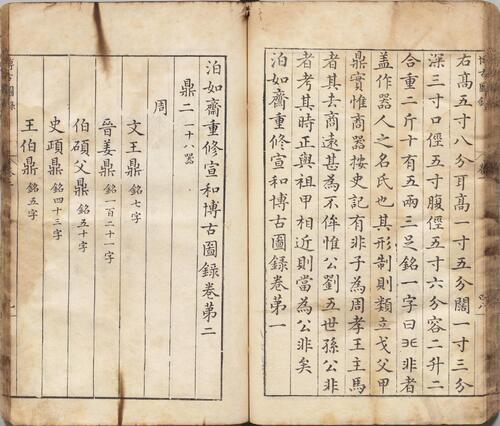 右高五寸八分耳高一寸五分闊一寸三分
深三寸口徑五寸腹徑五寸六分容二升二
合重二斤十有五兩三足銘一字曰非者
蓋作器人之名氏也其形制則類立戈父甲
鼎實惟商器按史記有非子為周孝王主馬
者其去商遠甚為不侔惟公劉五世孫公非
者考其時正與祖甲相近則當為公非矣
泊如齋重修宣和博古圖錄卷第一
泊如齋重修宣和博古圖錄卷第二
鼎二 一十八器
周
文王鼎 銘七字
晉姜鼎 銘一百二十一字
伯碩父鼎 銘五十字
史頙鼎 銘四十三字
王伯鼎 銘五字